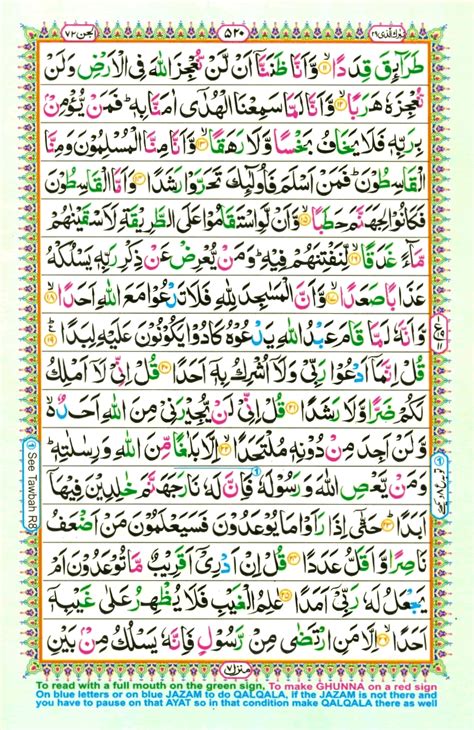 الجن ٧٢ ۵۲۰ تبرك الذی ٢٩
طَرَآئِقَ قِدَدًا ۙ﴿۱۱﴾ وَّاَنَّا ظَنَنَّاۤ اَنْ لَّنْ نُّعْجِزَ اللّٰهَ فِی الْاَرْضِ وَلَنْ
نُّعْجِزَهٗ هَرَبًا ۙ﴿۱۲﴾ وَّاَنَّا لَمَّا سَمِعْنَا الْهُدٰۤی اٰمَنَّا بِهٖ ؕ فَمَنْ یُّؤْمِنْۢ
بِرَبِّهٖ فَلَا یَخَافُ بَخْسًا وَّلَا رَهَقًا ۙ﴿۱۳﴾ وَّاَنَّا مِنَّا الْمُسْلِمُوْنَ وَمِنَّا
الْقٰسِطُوْنَ ؕ فَمَنْ اَسْلَمَ فَاُولٰٓئِكَ تَحَرَّوْا رَشَدًا ﴿۱۴﴾ وَاَمَّا الْقٰسِطُوْنَ
فَكَانُوْا لِجَهَنَّمَ حَطَبًا ۙ﴿۱۵﴾ وَّاَنْ لَّوِ اسْتَقَامُوْا عَلَی الطَّرِیْقَةِ لَاَسْقَیْنٰهُمْ
مَّآءً غَدَقًا ۙ﴿۱۶﴾ لِّنَفْتِنَهُمْ فِیْهِ ؕ وَمَنْ یُّعْرِضْ عَنْ ذِكْرِ رَبِّهٖ یَسْلُكْهُ
عَذَابًا صَعَدًا ۙ﴿۱۷﴾ وَّاَنَّ الْمَسٰجِدَ لِلّٰهِ فَلَا تَدْعُوْا مَعَ اللّٰهِ اَحَدًا ۙ﴿۱۸﴾
وَّاَنَّهٗ لَمَّا قَامَ عَبْدُ اللّٰهِ یَدْعُوْهُ كَادُوْا یَكُوْنُوْنَ عَلَیْهِ لِبَدًا ؕ﴿۱۹﴾
قُلْ اِنَّمَاۤ اَدْعُوْا رَبِّیْ وَلَاۤ اُشْرِكُ بِهٖۤ اَحَدًا ﴿۲۰﴾ قُلْ اِنِّیْ لَاۤ اَمْلِكُ
لَكُمْ ضَرًّا وَّلَا رَشَدًا ﴿۲۱﴾ قُلْ اِنِّیْ لَنْ یُّجِیْرَنِیْ مِنَ اللّٰهِ اَحَدٌ ۙ۬
وَّلَنْ اَجِدَ مِنْ دُوْنِهٖ مُلْتَحَدًا ۙ﴿۲۲﴾ اِلَّا بَلٰغًا مِّنَ اللّٰهِ وَرِسٰلٰتِهٖ ؕ
وَمَنْ یَّعْصِ اللّٰهَ وَرَسُوْلَهٗ فَاِنَّ لَهٗ نَارَ جَهَنَّمَ خٰلِدِیْنَ فِیْهَاۤ
اَبَدًا ؕ﴿۲۳﴾ حَتّٰۤی اِذَا رَاَوْا مَا یُوْعَدُوْنَ فَسَیَعْلَمُوْنَ مَنْ اَضْعَفُ
نَاصِرًا وَّاَقَلُّ عَدَدًا ﴿۲۴﴾ قُلْ اِنْ اَدْرِیْۤ اَقَرِیْبٌ مَّا تُوْعَدُوْنَ اَمْ
یَجْعَلُ لَهٗ رَبِّیْۤ اَمَدًا ﴿۲۵﴾ عٰلِمُ الْغَیْبِ فَلَا یُظْهِرُ عَلٰی غَیْبِهٖۤ
اَحَدًا ۙ﴿۲۶﴾ اِلَّا مَنِ ارْتَضٰی مِنْ رَّسُوْلٍ فَاِنَّهٗ یَسْلُكُ مِنْۢ بَیْنِ
منزل ٧
① See Tawbah R8
To read with a full mouth on the green sign, To make GHUNNA on a red sign
On blue letters or on blue JAZAM to do QALQALA, if the JAZAM is not there and
you have to pause on that AYAT so in that condition make QALQALA there as well